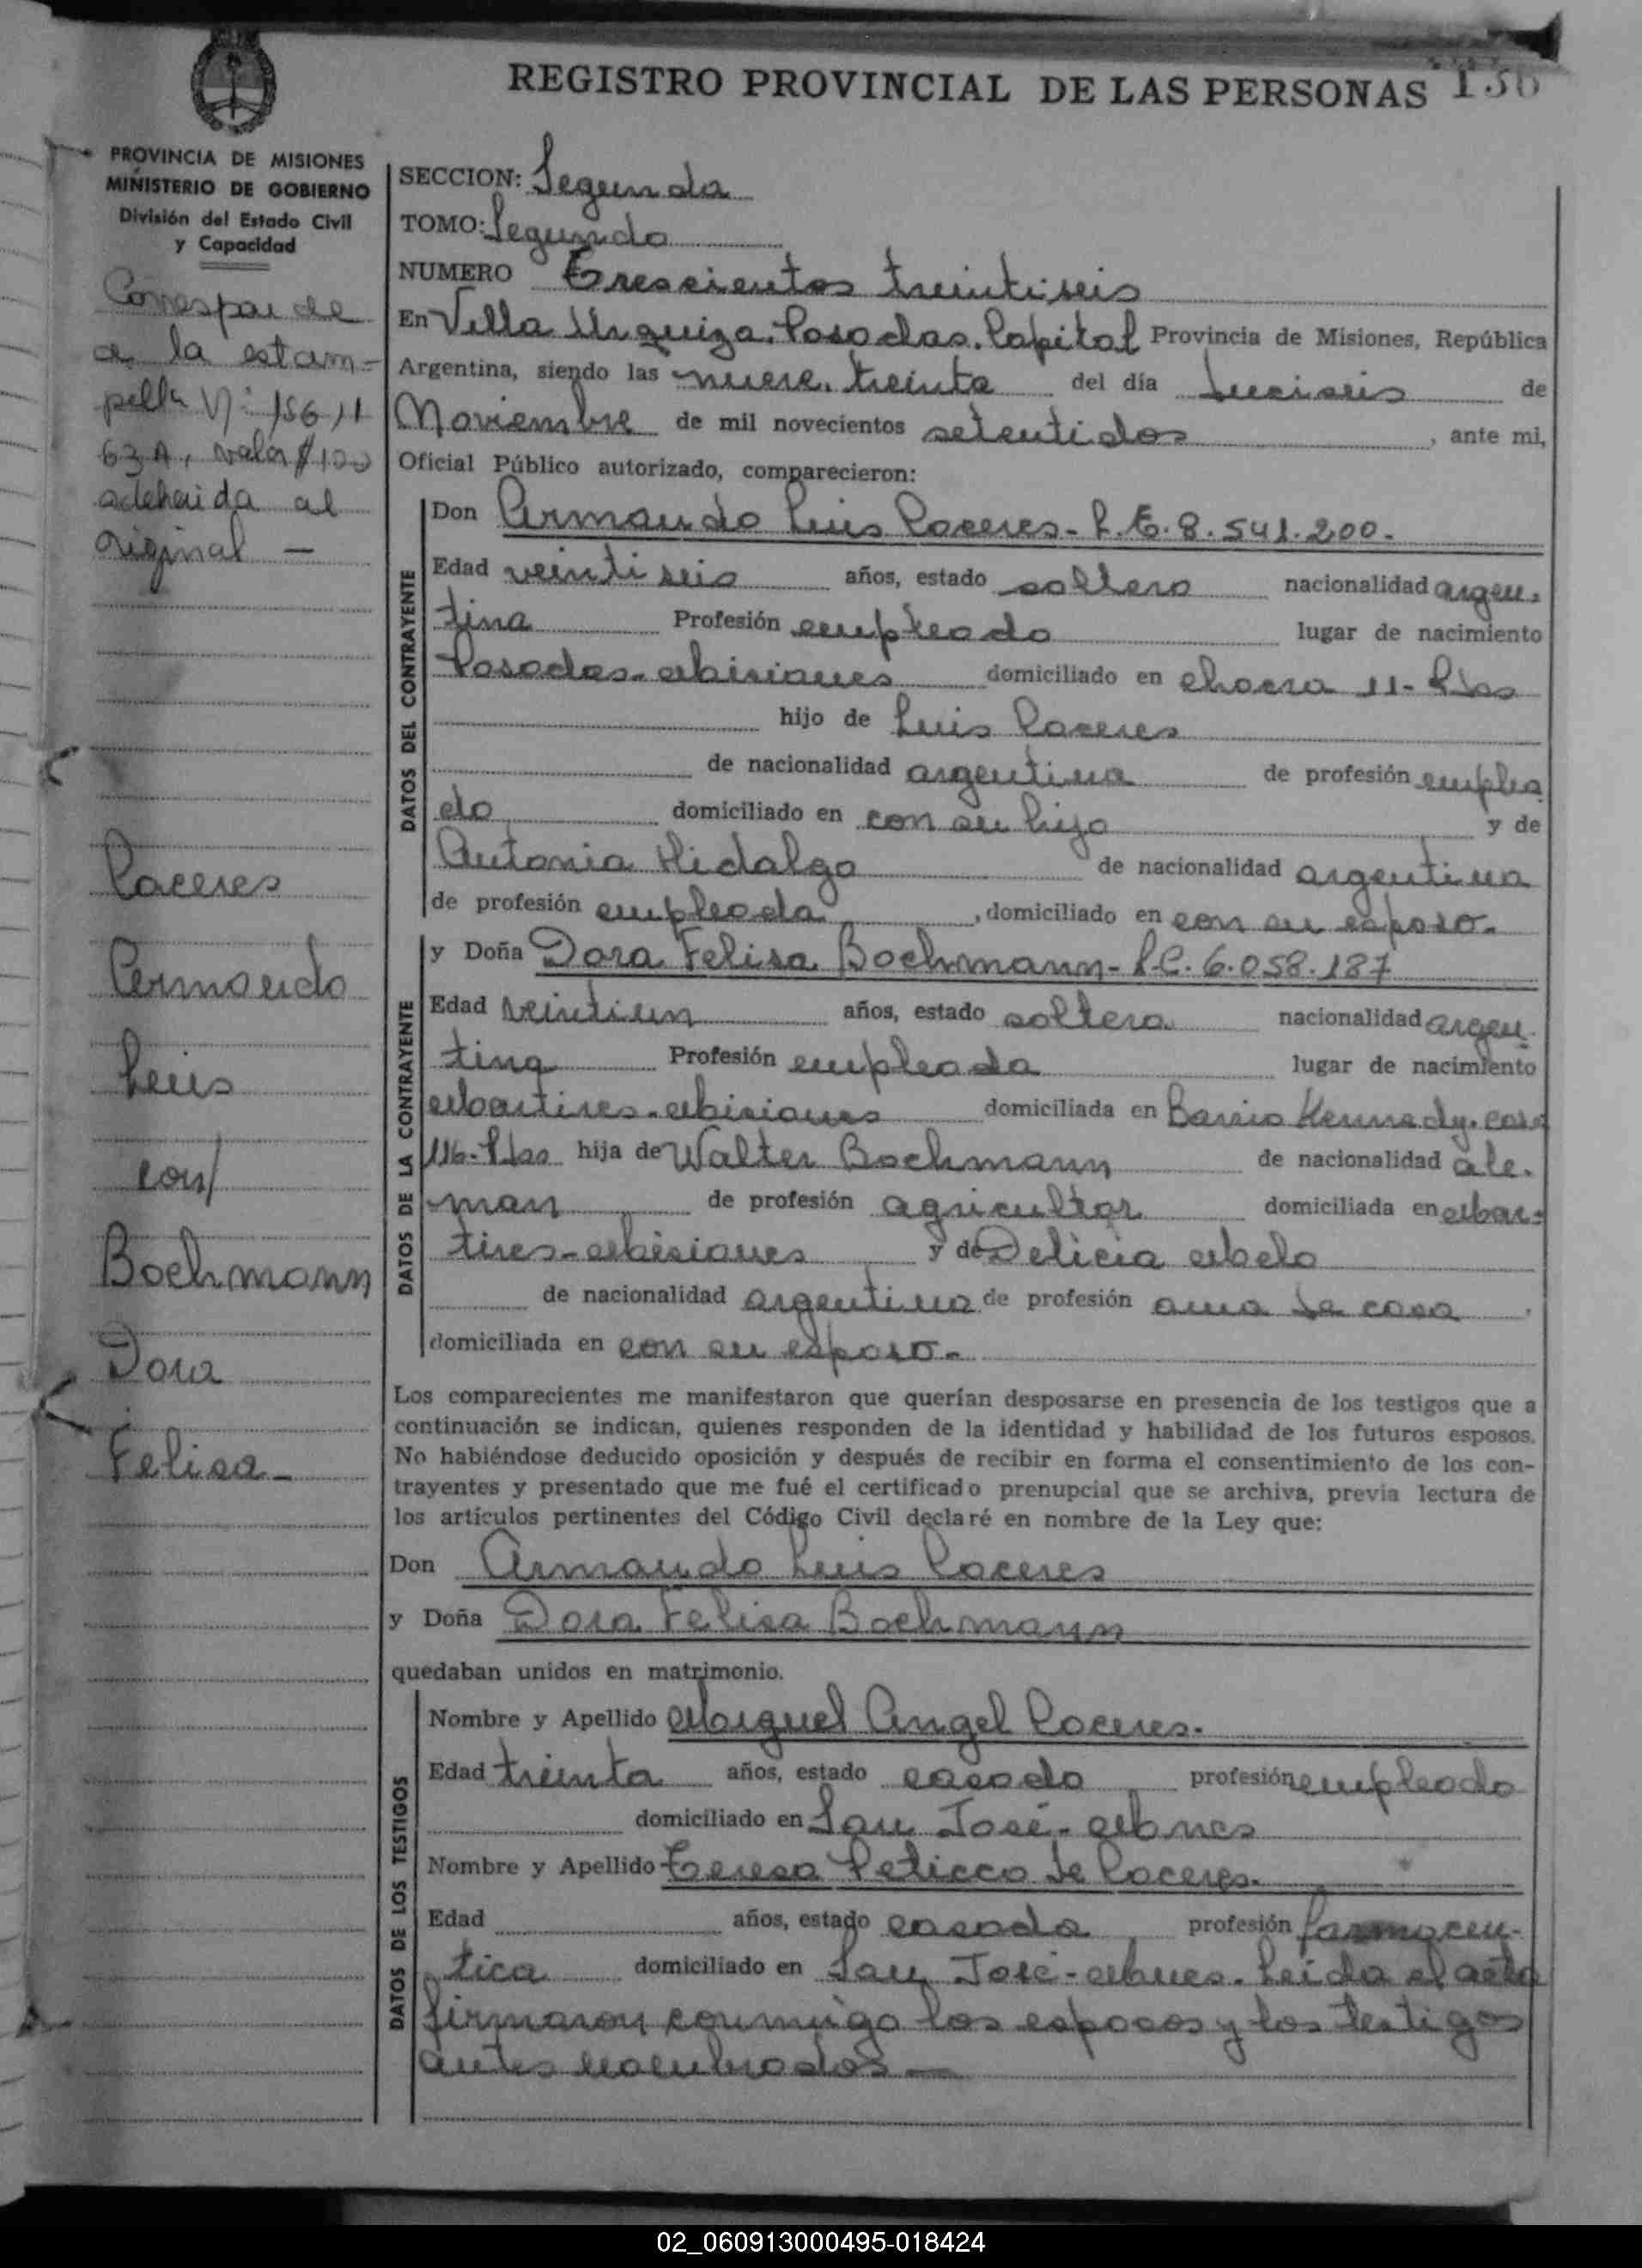 REGISTRO PROVINCIAL DE LAS PERSONAS 136
PROVINCIA DE MISIONES
MINISTERIO DE GOBIERNO
División del Estado Civil
y Capacidad
Corresponde
a la estam-
pilla Nº 15611
63 A, valor $ 100
adherida al
original —
Caceres
Armando
Luis
con/
Bochmann
Dora
Felisa -
SECCION: Segunda
TOMO: Segundo
NUMERO Trescientos treintiseis
En Villa Urquiza. Posadas. Capital Provincia de Misiones, República
Argentina, siendo las nueve. treinta del día dieciseis de
Noviembre de mil novecientos setentidos, ante mi,
Oficial Público autorizado, comparecieron:
DATOS DEL CONTRAYENTE
Don Armando Luis Caceres - L.E. 8.541.200.
Edad veintiseis años, estado soltero nacionalidad argen-
tina Profesión empleado lugar de nacimiento
Posadas - Misiones domiciliado en chacra 11 - Pdas
hijo de Luis Caceres
de nacionalidad argentina de profesión emplea
do domiciliado en con su hijo y de
Antonia Hidalgo de nacionalidad argentina
de profesión empleada, domiciliado en con su esposo.
DATOS DE LA CONTRAYENTE
y Doña Dora Felisa Bochmann - L.C. 6.058.187
Edad veintiun años, estado soltera nacionalidad argen-
tina Profesión empleada lugar de nacimiento
Martires - Misiones domiciliada en Barrio Kennedy. casa
116 - Pdas hija de Walter Bochmann de nacionalidad ale-
man de profesión agricultor domiciliada en Mar-
tires - Misiones y de Delicia Melo
de nacionalidad argentina de profesión ama de casa
domiciliada en con su esposo.
Los comparecientes me manifestaron que querían desposarse en presencia de los testigos que a
continuación se indican, quienes responden de la identidad y habilidad de los futuros esposos.
No habiéndose deducido oposición y después de recibir en forma el consentimiento de los con-
trayentes y presentado que me fué el certificado prenupcial que se archiva, previa lectura de
los artículos pertinentes del Código Civil declaré en nombre de la Ley que:
Don Armando Luis Caceres
y Doña Dora Felisa Bochmann
quedaban unidos en matrimonio.
DATOS DE LOS TESTIGOS
Nombre y Apellido Miguel Angel Caceres.
Edad treinta años, estado casado profesión empleado
domiciliado en San José - Mnes
Nombre y Apellido Teresa Peticco de Caceres.
Edad años, estado casada profesión farmaceu-
tica domiciliado en San José - Mnes. Leida el acta
firmaron conmigo los esposos y los testigos
antes nombrados —
02_060913000495-018424